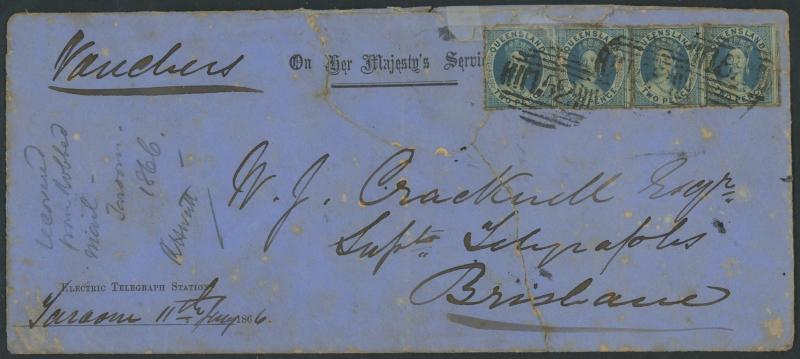 Vouchers
On Her Majesty's Servic
QUEENSLAND
TWO PENCE
QUEENSLAND
TWO PENCE
QUEENSLAND
TWO PENCE
QUEENSLAND
TWO PENCE
recovered
from robbed
mail -
Taroom -
1866
W. J. Cracknell Esqr.
Supts Telegraphs
Brisbane
ELECTRIC TELEGRAPH STATION
Taroom 11th 1866.